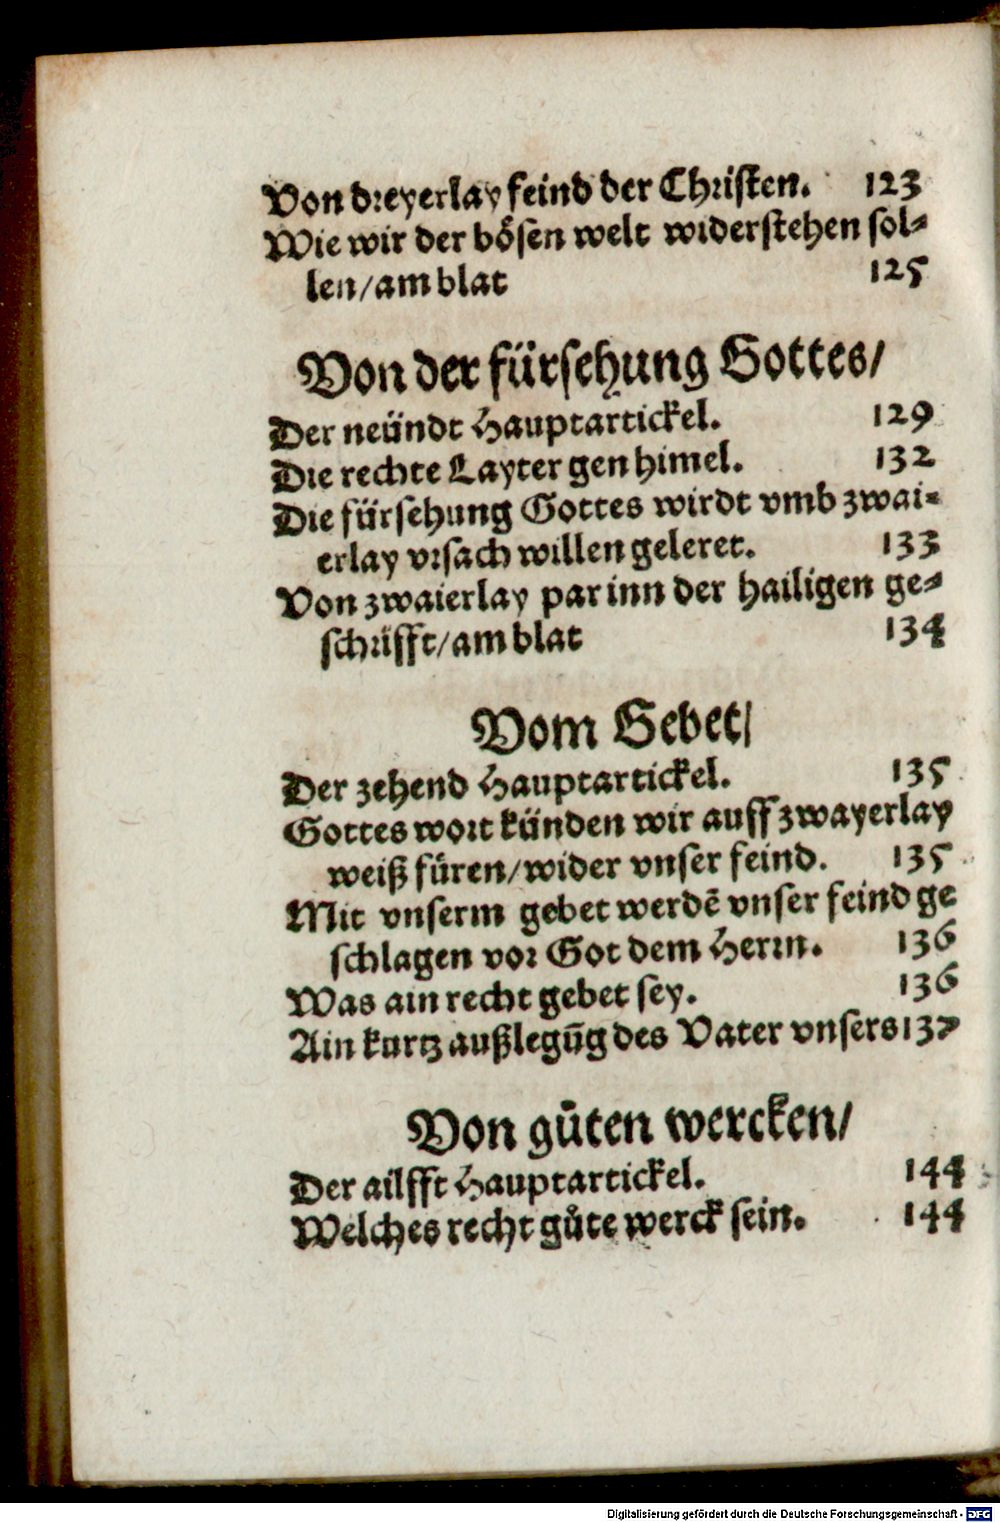 Von dreyerlay feind der Christen. 123
Wie wir der bösen welt widerstehen sol⸗
len/am blat 125
Von der fürsehung Gottes/
Der neündt Hauptartickel. 129
Die rechte Layter gen himel. 132
Die fürsehung Gottes wirdt vmb zwai⸗
erlay vrsach willen geleret. 133
Von zwaierlay par inn der hailigen ge⸗
schrifft/am blat 134
Vom Gebet/
Der zehend Hauptartickel. 135
Gottes wort künden wir auff zwayerlay
weiß füren/wider vnser feind. 135
Mit vnserm gebet werdē vnser feind ge
schlagen vor Got dem Herrn. 136
Was ain recht gebet sey. 136
Ain kurtz außlegūg des Vater vnsers 137
Von gůten wercken/
Der ailfft Hauptartickel. 144
Welches recht gůte werck sein. 144
Digitalisierung gefördert durch die Deutsche Forschungsgemeinschaft - DFG